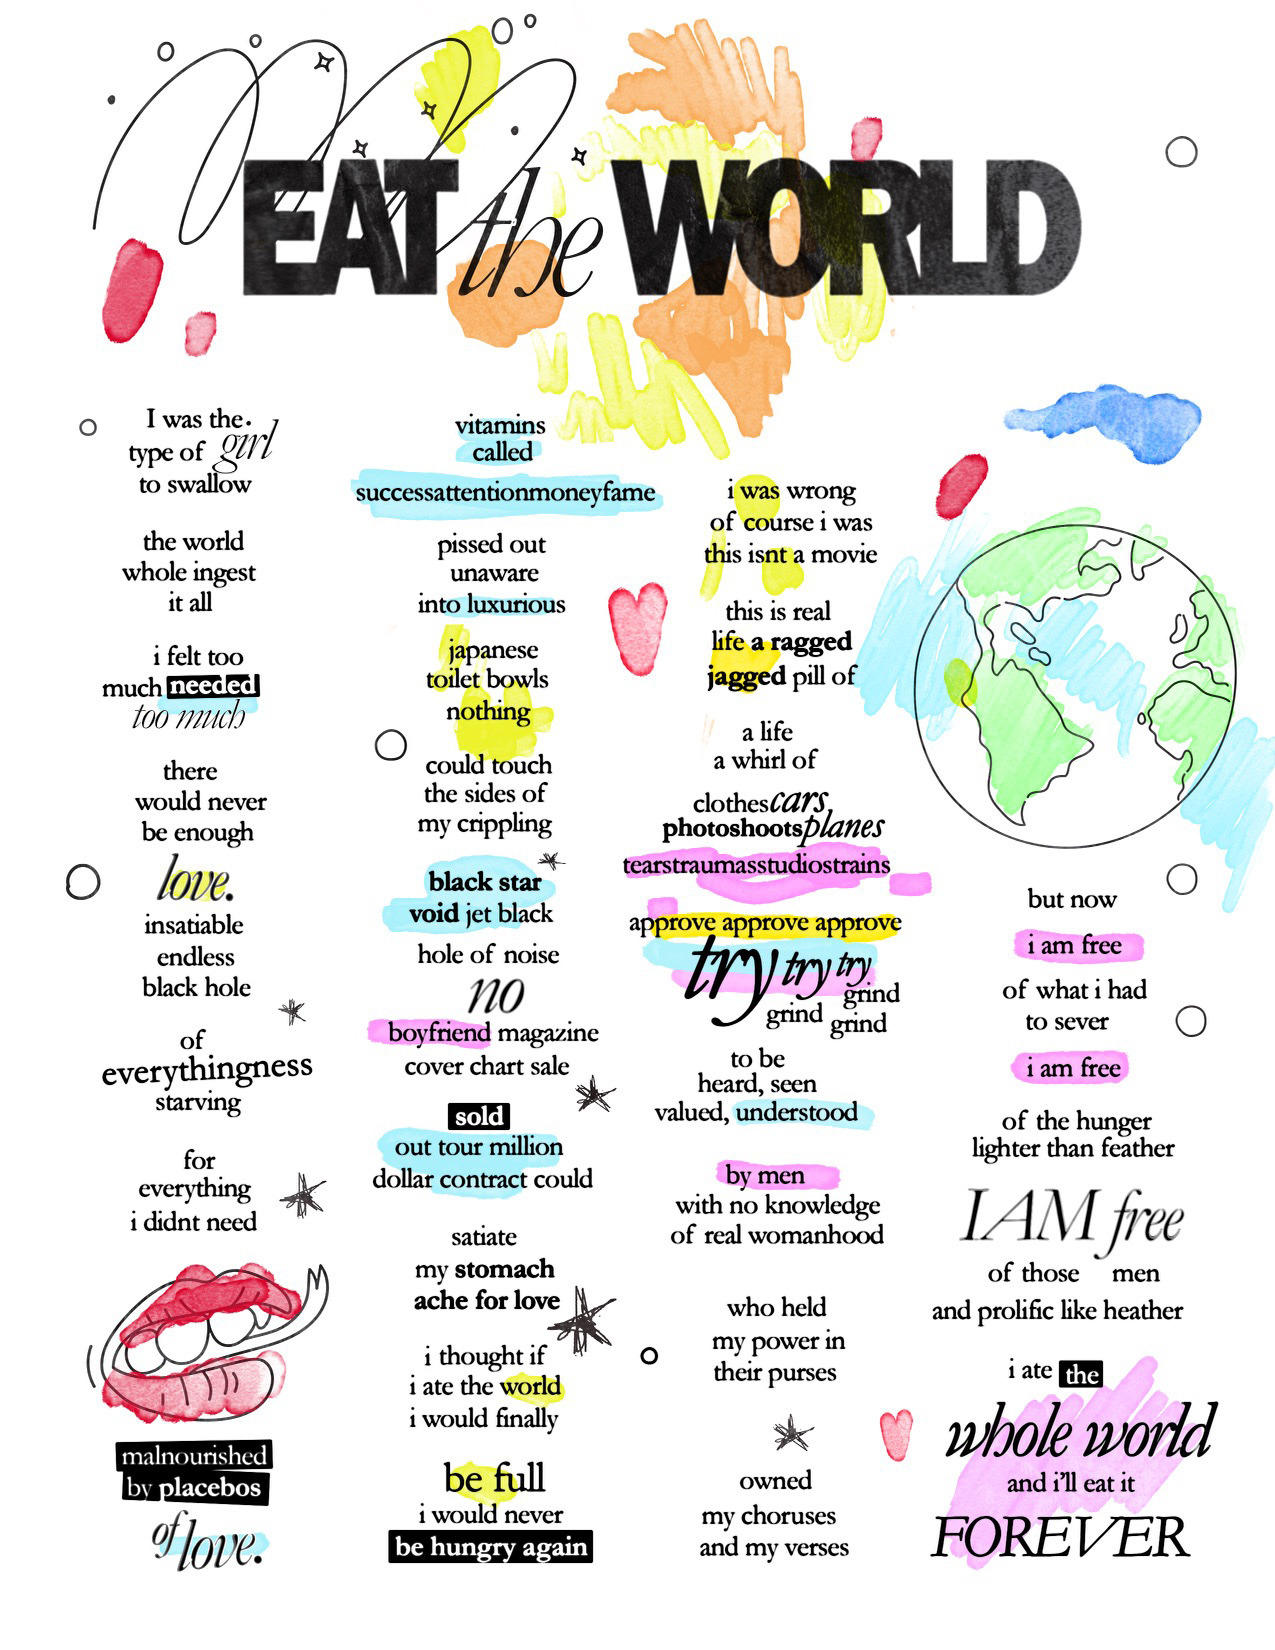 EAT the WORLD
I was the
type of girl
to swallow
the world
whole ingest
it all
i felt too
much needed
too much
there
would never
be enough
love.
insatiable
endless
black hole
of
everythingness
starving
for
everything
i didnt need
malnourished
by placebos
of love.
vitamins
called
successattentionmoneyfame
pissed out
unaware
into luxurious
japanese
toilet bowls
nothing
could touch
the sides of
my crippling
black star
void jet black
hole of noise
no
boyfriend magazine
cover chart sale
sold
out tour million
dollar contract could
satiate
my stomach
ache for love
i thought if
i ate the world
i would finally
be full
i would never
be hungry again
i was wrong
of course i was
this isnt a movie
this is real
life a ragged
jagged pill of
a life
a whirl of
clothescars,
photoshootsplanes
tearstraumasstudiostrains
approve approve approve
try try try
grind
grind grind
to be
heard, seen
valued, understood
by men
with no knowledge
of real womanhood
who held
my power in
their purses
owned
my choruses
and my verses
but now
i am free
of what i had
to sever
i am free
of the hunger
lighter than feather
I AM free
of those men
and prolific like heather
i ate the
whole world
and i'll eat it
FOREVER